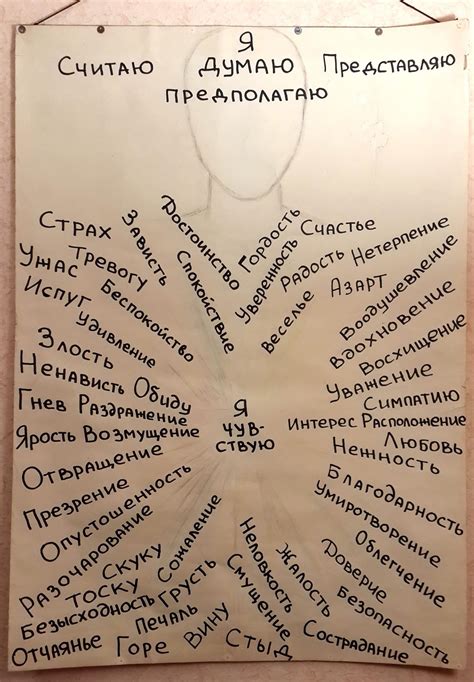 Я
Считаю Думаю Представляю
предполагаю
Страх
Ужас Тревогу
Испуг Беспокойство
Зависть
Удивление
Достоинство
Спокойствие
Гордость
Уверенность
Счастье
Радость
Веселье
Нетерпение
Азарт
Воодушевление
Вдохновение
Восхищение
Уважение
Симпатию
Интерес Расположение
Любовь
Нежность
Благодарность
Умиротворение
Облегчение
Доверие
Безопасность
Жалость
Сострадание
Неловкость
Смущение
Стыд
Я
чув-
ствую
Злость
Ненависть Обиду
Гнев Раздражение
Ярость Возмущение
Отвращение
Презрение
Опустошенность
Разочарование
Скуку
Тоску
Сожаление
Безысходность Грусть
Отчаянье
Печаль
Горе
Вину